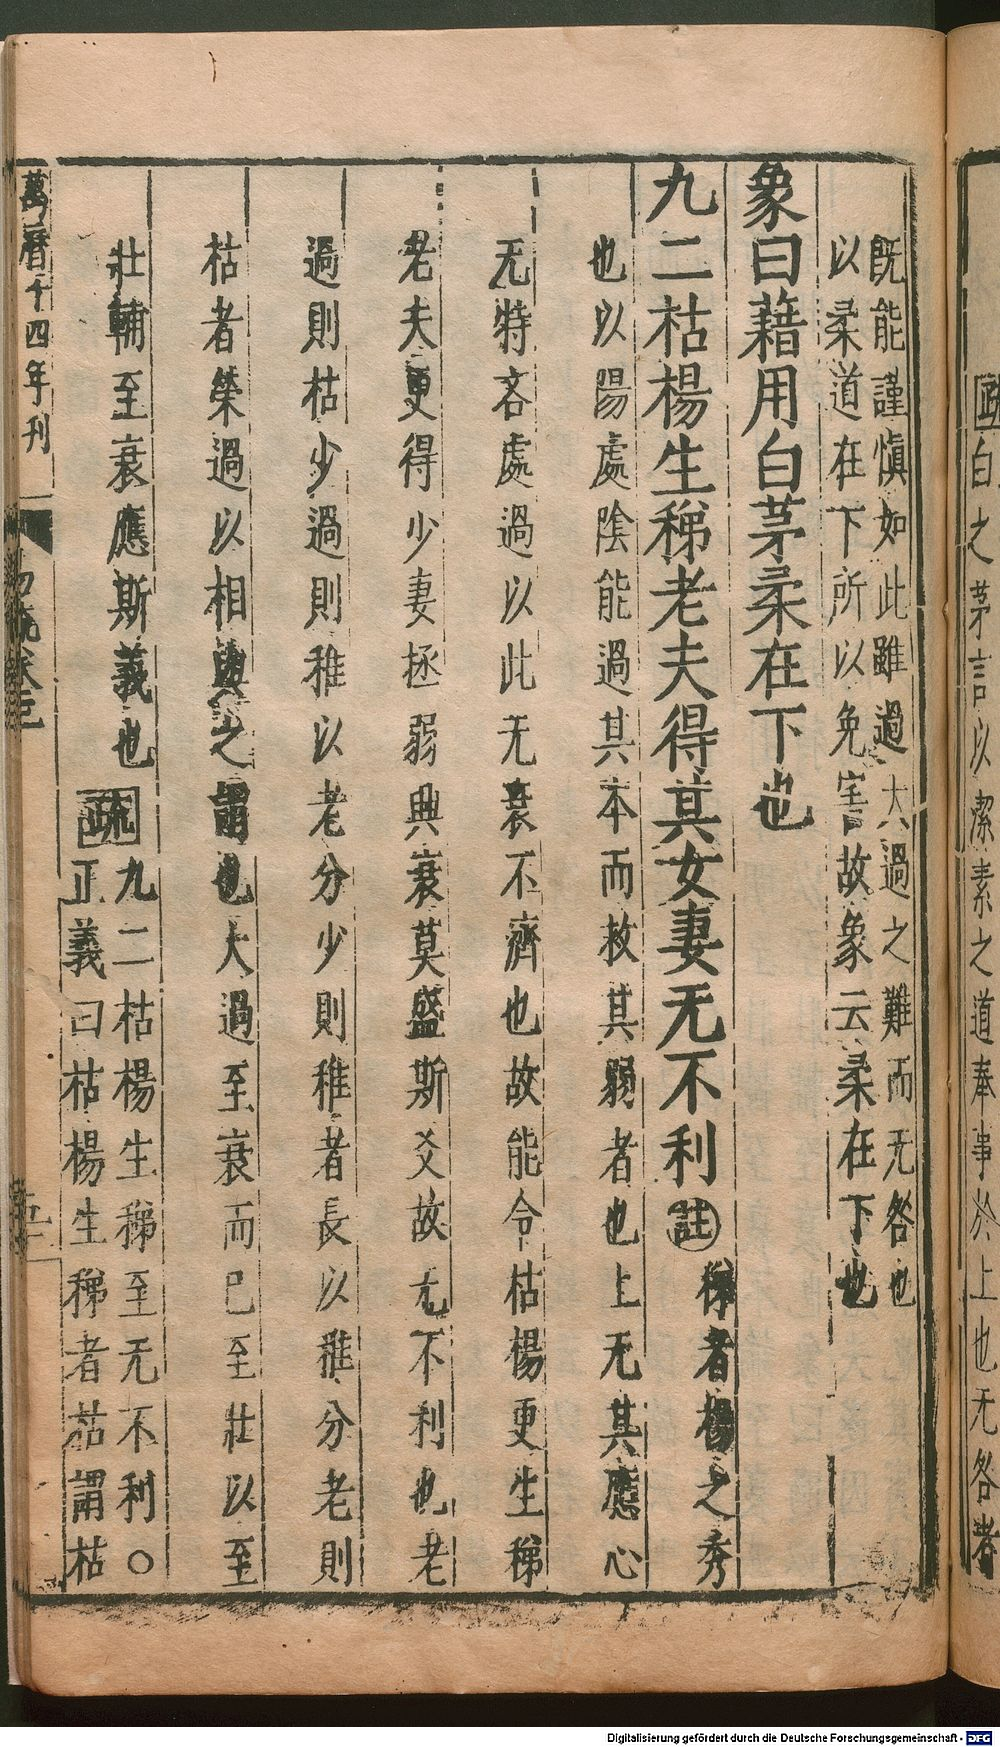 疏白之茅言以潔素之道奉事於上也无咎者
既能謹愼如此雖過大過之難而无咎也
以柔道在下所以免害故象云柔在下也
象曰藉用白茅柔在下也
九二枯楊生稊老夫得其女妻无不利註稊者楊之秀
也以陽處陰能過其本而救其弱者也上无其應心
无特吝處過以此无衰不濟也故能令枯楊更生稊
老夫更得少妻拯弱興衰莫盛斯爻故尢不利也老
過則枯少過則稚以老分少則稚者長以稚分老則
枯者榮過以相與之謂也大過至衰而巳至壯以至
壯輔至衰應斯義也疏九二枯楊生稊至无不利○
正義曰枯楊生稊者枯謂枯
萬曆十四年刊
易疏卷三
Digitalisierung gefördert durch die Deutsche Forschungsgemeinschaft - DFG